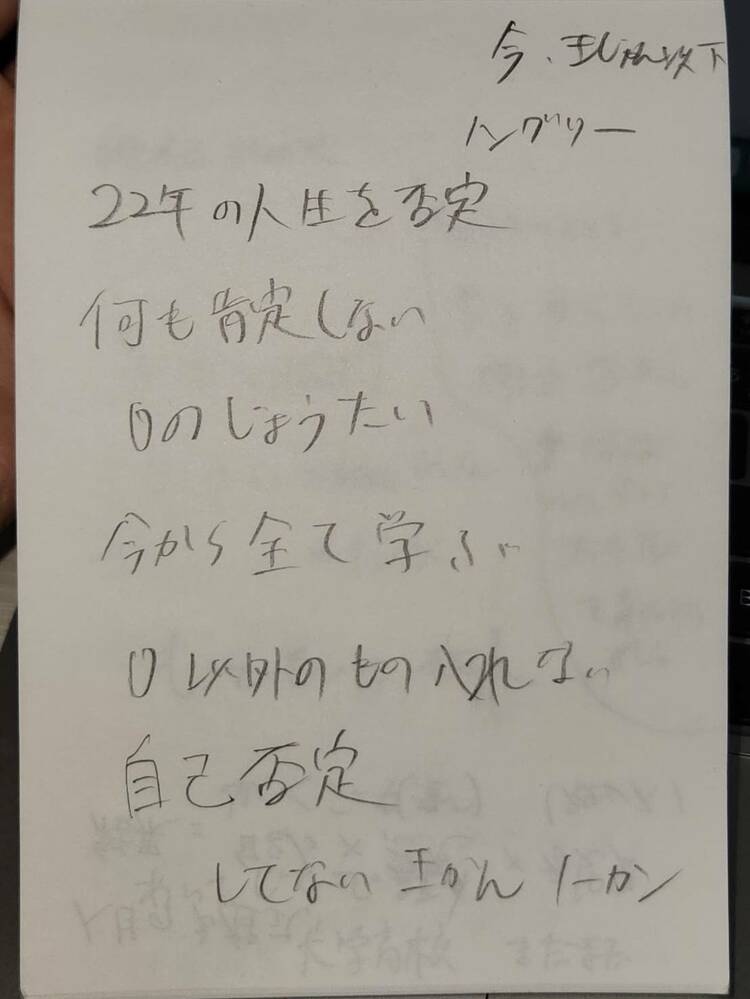 今、王じかん以下
ハングリー
22年の人生を否定
何も肯定しない
0のじょうたい
今から全て学ぶ
0以外のもの入れない
自己否定
してない 王かん ノーカン